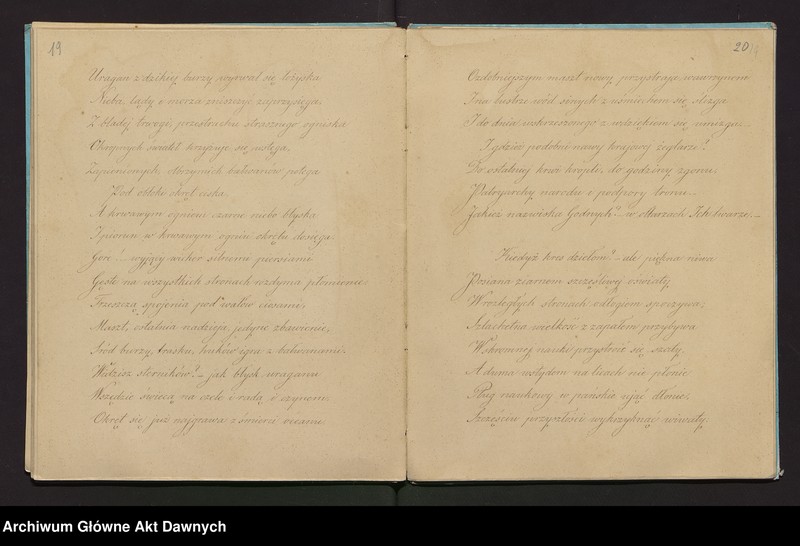 19
Uragan z dzikiej burzy wyrwał się łożyska
Niebu, lądy i morza zniszczyć zaprzysięga.
Z bladej trwogi, przestrachu strasznego igrzyska
Okropnych świateł krzyżuje się wstęga,
Zapienionych, olbrzymich bałwanów potęga
Pod obłoki okręt ciska.
A krwawym ogniem czarne niebo błyska
I piorun w krwawym ogniu okrętu dosięga.
Gore!... wyjący wicher silnemi piersiami
Gęste na wszystkich stronach rozdyma płomienie.
Trzeszczą spojenia pod wałów ciosami,
Maszt, ostatnia nadzieja, jedyne zbawienie,
Śród burzy, trasku, huków igra z bałwanami.
Widzisz sterników? – jak błysk uraganu
Wszędzie świecą na czele i radą i czynem
Okręt się już najgrawa z śmierci
20
Ozdobniejszym maszt nowy przystraja wawrzynem
I na lustrze wód sinych z uśmiechem się ślizga
I do dnia wskrzeszonego z wdziękiem się umizga
I gdzież podobni nawy krajowej żeglarze?
Do ostatniej krwi kropli, do godziny zgonu.
Patryarchy narodu i podpory tronu
Jakież nazwiska Godnych? w Ich twarze. –
Kiedyż kres dziełom? – ale piękna niwa
Posiana ziarnem szczęśliwej oświaty
W rozległych stronach odłogiem spoczywa;
Szlachetna wielkość z zapałem przybywa
W skromnej nauki przystroić się szaty
A duma wstydem na licach nie płonie
Pług naukowy w pańskie ująć dłonie,
Szczęściu przyszłości wykrzyknąć wiwaty
Archiwum Główne Akt Dawnych